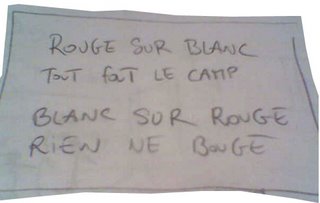 ROUGE SUR BLANC
TOUT FOUT LE CAMP
BLANC SUR ROUGE
RIEN NE BOUGE